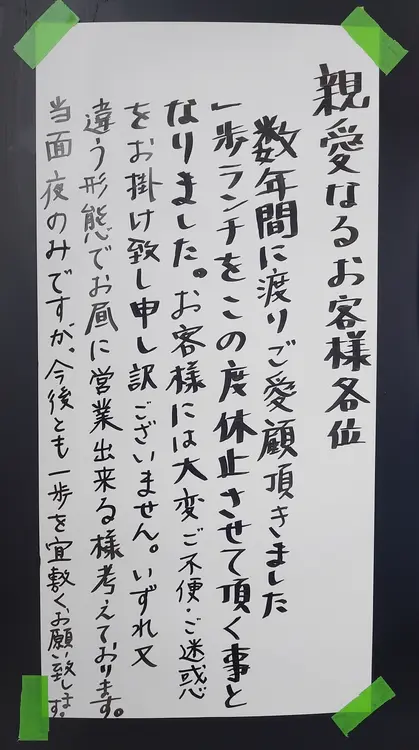 親愛なるお客様各位
数年間に渡りご愛顧頂きました
一歩ランチをこの度休止させて頂く事と
なりました。お客様には大変ご不便・ご迷惑
をお掛け致し申し訳ございません。いずれ又
違う形態でお昼に営業出来る様考えております。
当面夜のみですが、今後とも一歩を宜敷くお願い致します。